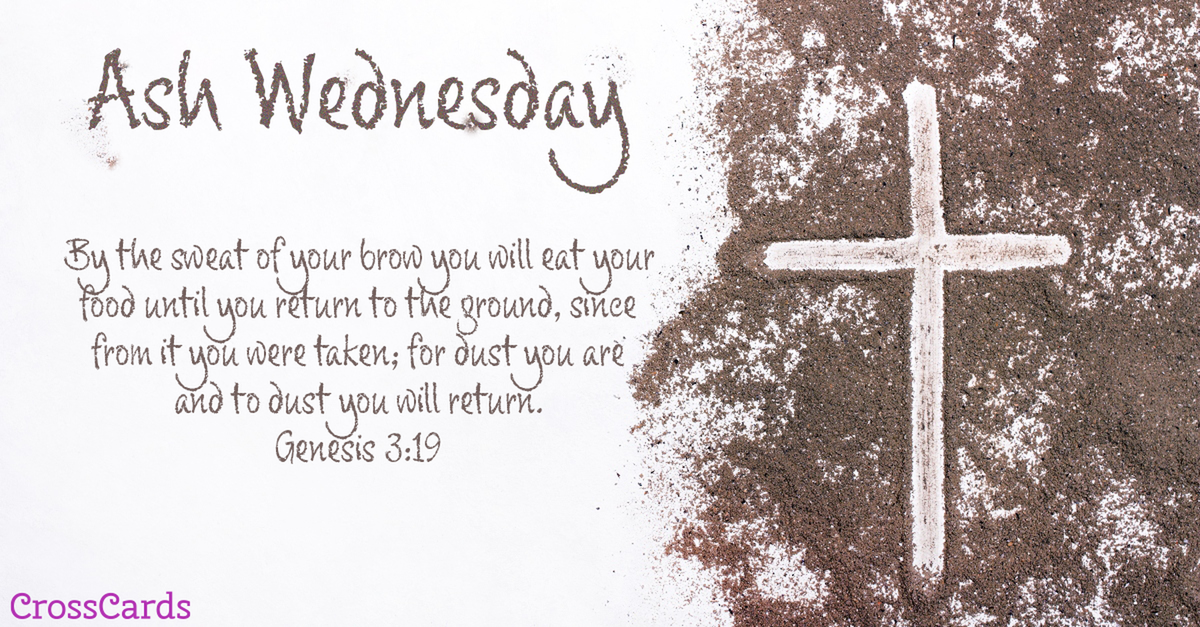 Ash Wednesday
By the sweat of your brow you will eat your
food until you return to the ground, since
from it you were taken; for dust you are
and to dust you will return.
Genesis 3:19
CrossCards